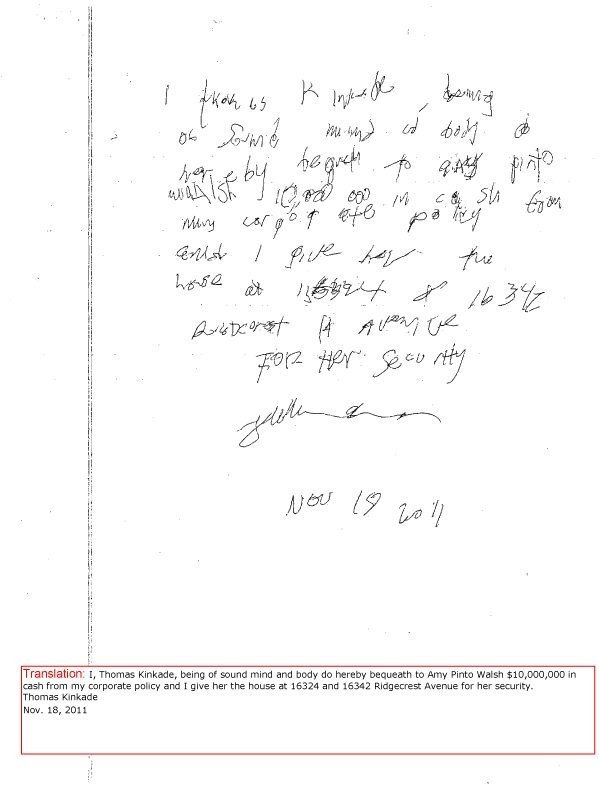 I Kinkade, being
of sound mind body do
hereby to amy pinto
walsh 10,000 000 in cash from
my policy
I give her the
house at & 16342
AVENUE
FOR HER Security
NOV 18 2011
Translation: I, Thomas Kinkade, being of sound mind and body do hereby bequeath to Amy Pinto Walsh $10,000,000 in
cash from my corporate policy and I give her the house at 16324 and 16342 Ridgecrest Avenue for her security.
Thomas Kinkade
Nov. 18, 2011